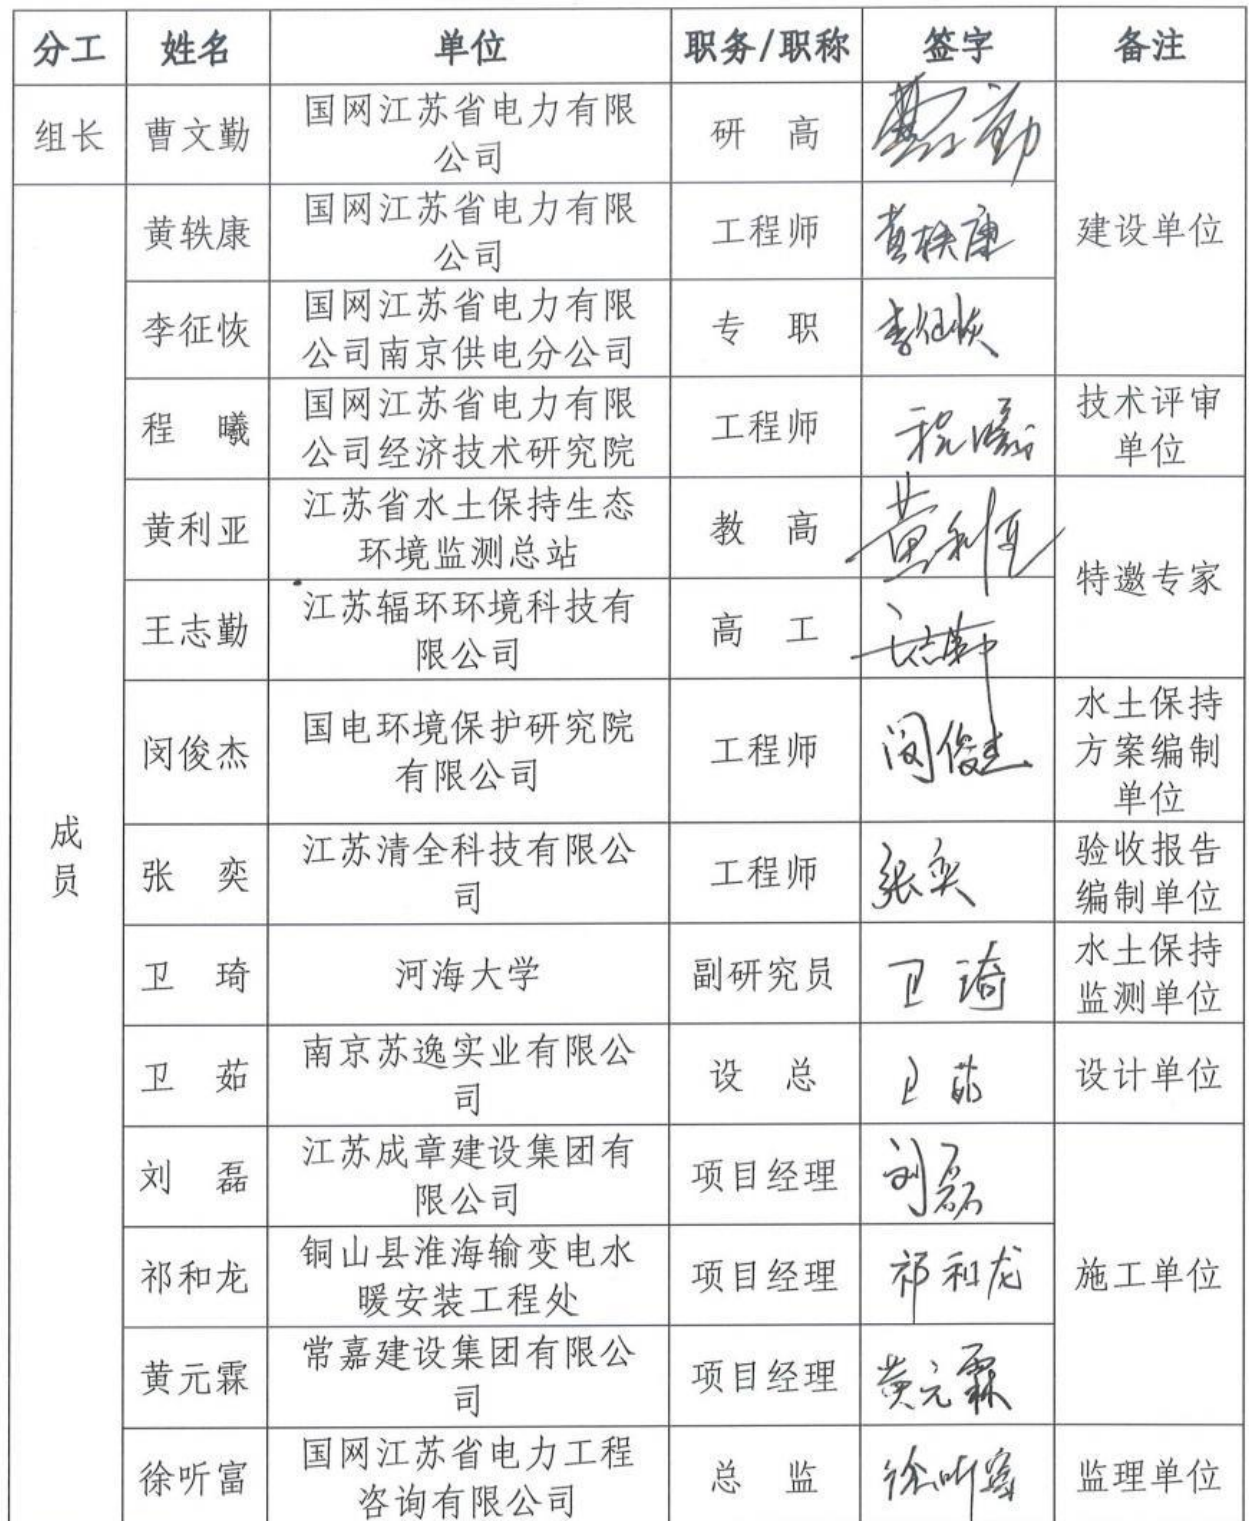 分工 姓名 单位 职务/职称 签字 备注
组长 曹文勤 国网江苏省电力有限
公司 研 高 建设单位
成
员
黄轶康 国网江苏省电力有限
公司 工程师 黄轶康
李征恢 国网江苏省电力有限
公司南京供电分公司 专 职 李征恢
程 曦 国网江苏省电力有限
公司经济技术研究院 工程师 程曦 技术评审
单位
黄利亚 江苏省水土保持生态
环境监测总站 教 高 黄利亚 特邀专家
王志勤 江苏辐环环境科技有
限公司 高 工 王志勤
闵俊杰 国电环境保护研究院
有限公司 工程师 闵俊杰 水土保持
方案编制
单位
张 奕 江苏清全科技有限公
司 工程师 张奕 验收报告
编制单位
卫 琦 河海大学 副研究员 卫琦 水土保持
监测单位
卫 茹 南京苏逸实业有限公
司 设 总 卫茹 设计单位
刘 磊 江苏成章建设集团有
限公司 项目经理 刘磊 施工单位
祁和龙 铜山县淮海输变电水
暖安装工程处 项目经理 祁和龙
黄元霖 常嘉建设集团有限公
司 项目经理 黄元霖
徐听富 国网江苏省电力工程
咨询有限公司 总 监 徐听富 监理单位